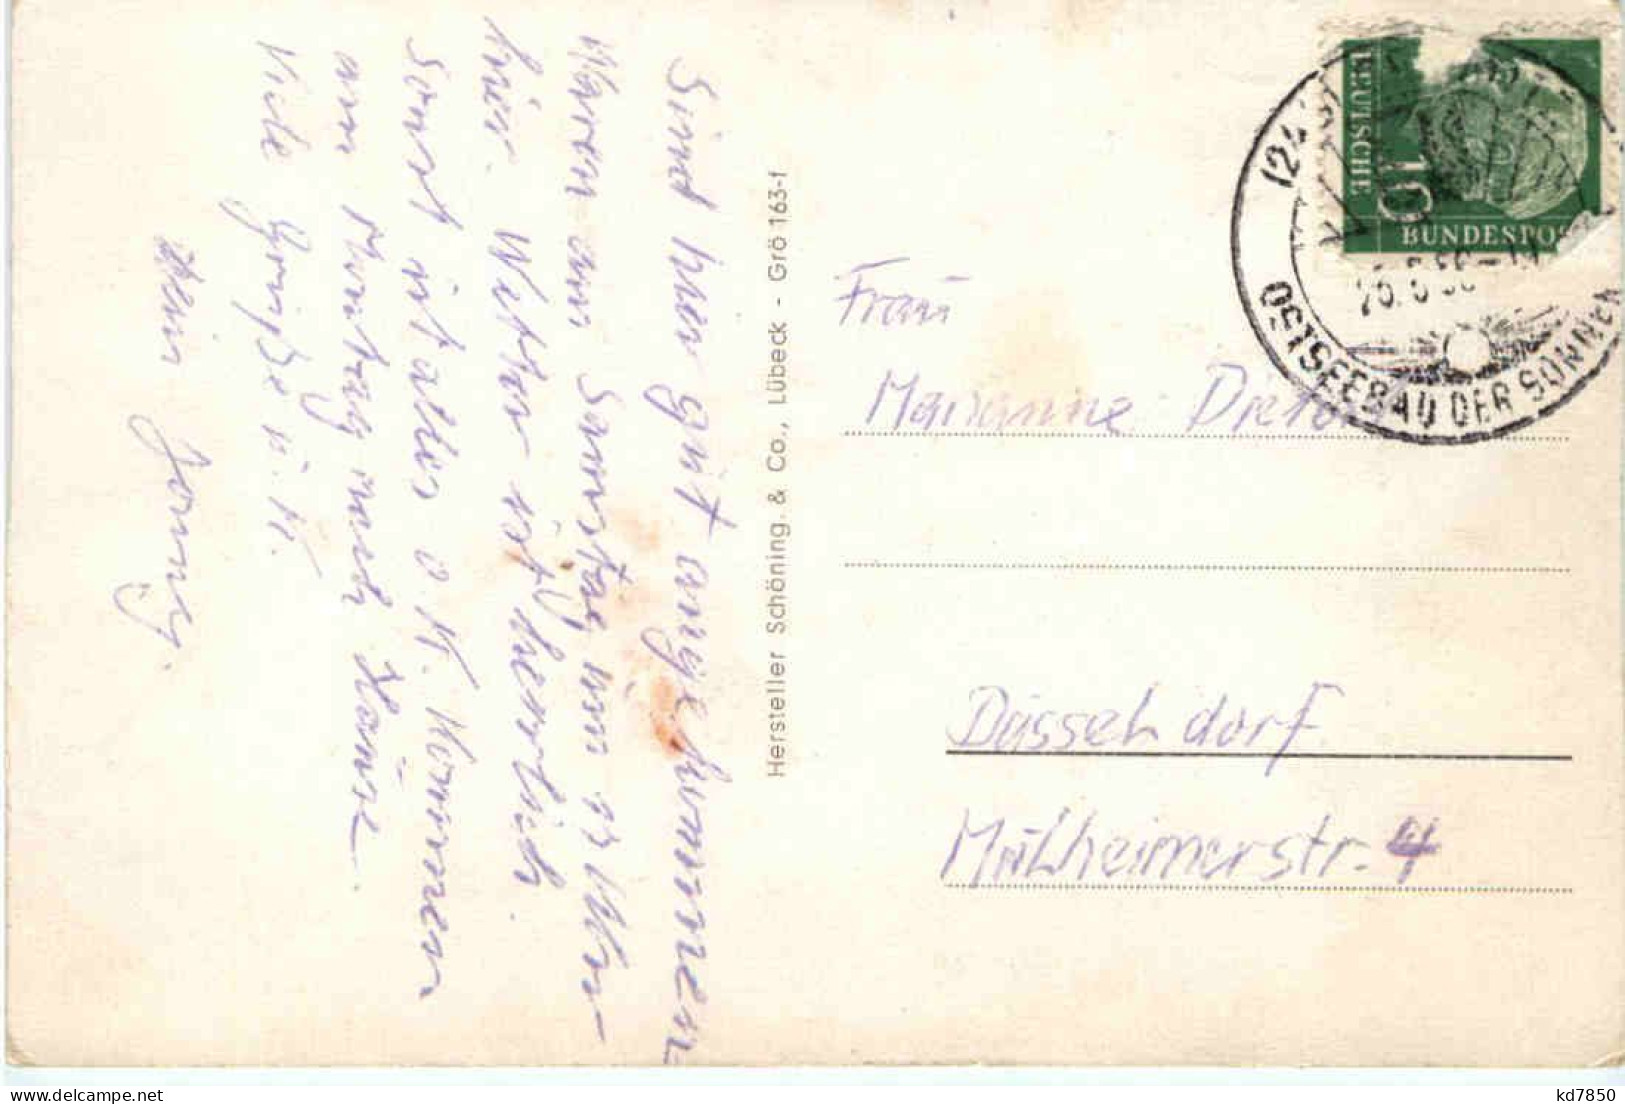 Sind hier gut angekommen
Waren am Samstag um 13 Uhr
hier. Wetter ist herrlich.
Sonst ist alles o.K. Kommen
am Montag nach Hause.
Viele Grüße u. K.
Dein Jonny.
Hersteller Schöning & Co., Lübeck - Grö 163-1
Frau
Marianne Dieter
Düsseldorf
Mülheimerstr. 4
DEUTSCHE
10
BUNDESPOS
OSTSEEBAD DER SONNEN
kd7850